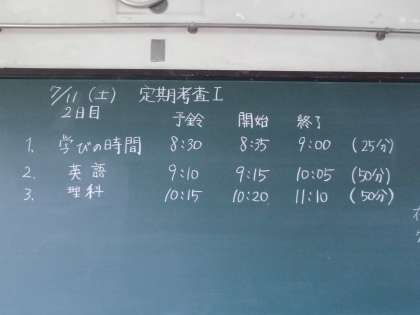 7/11（土） 定期考査I
2日目
予鈴 開始 終了
1. 学びの時間 8:30 8:35 9:00 （25分）
2. 英語 9:10 9:15 10:05 （50分）
3. 理科 10:15 10:20 11:10 （50分）